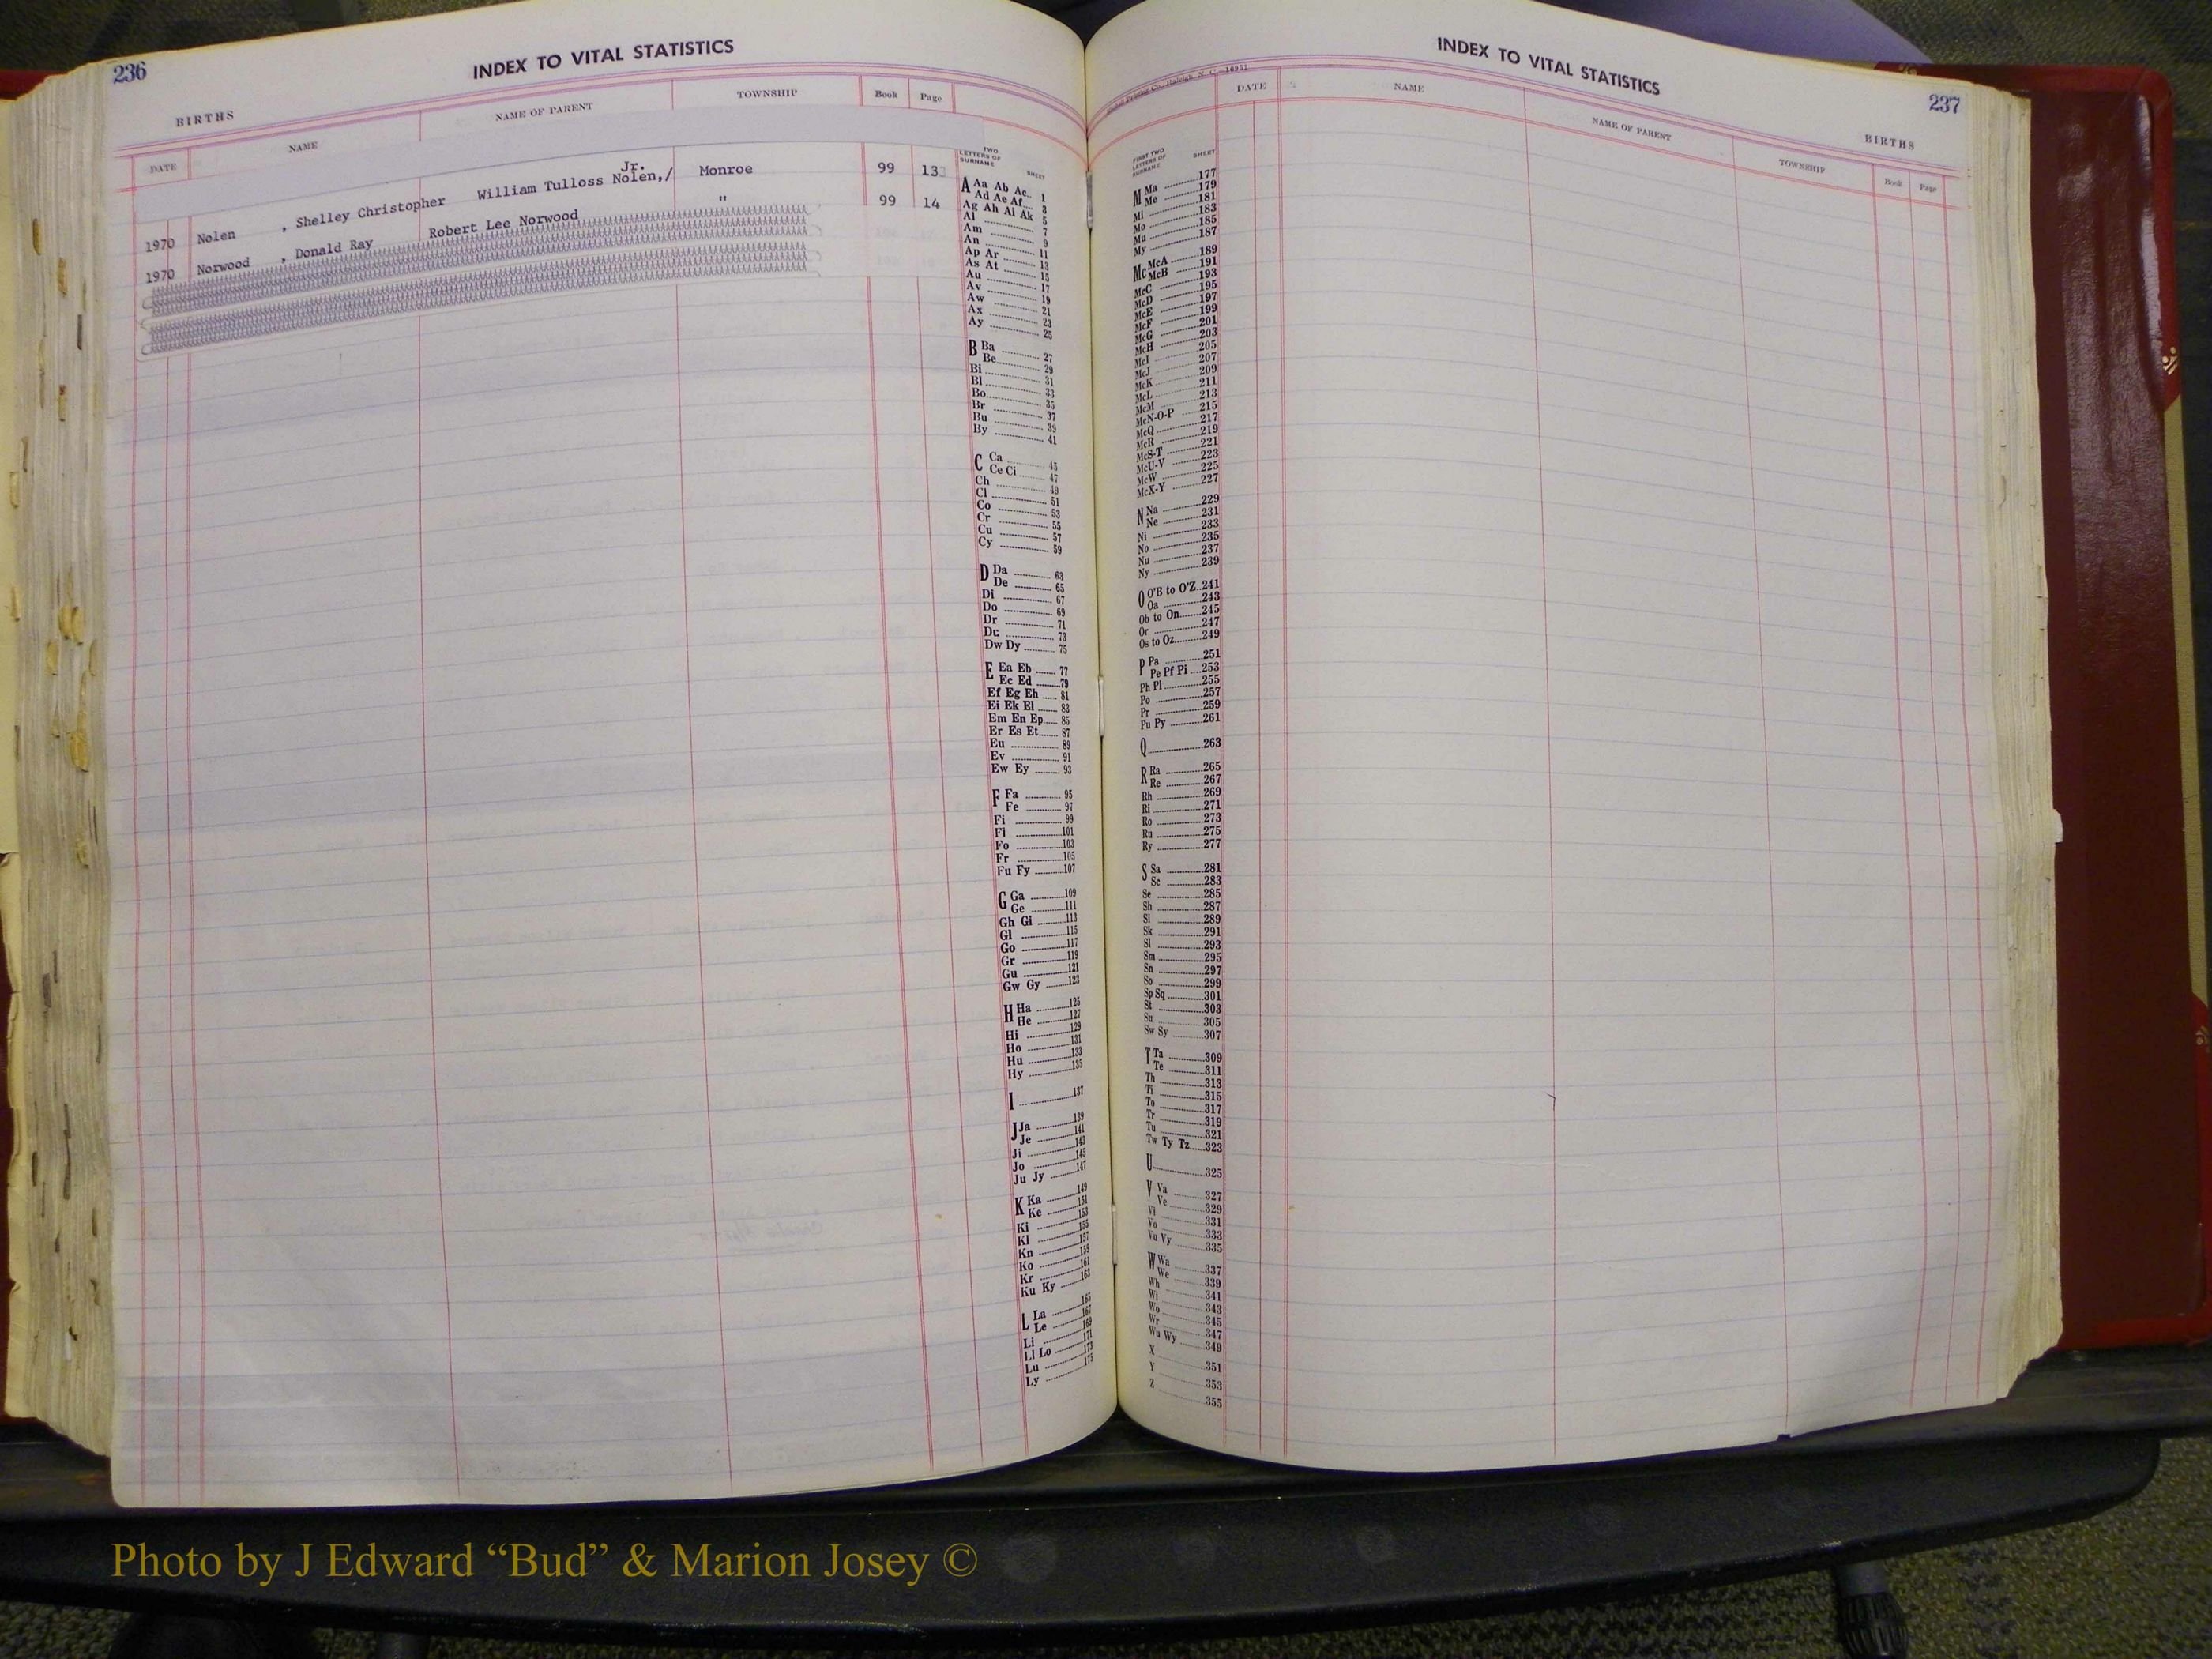 236
INDEX TO VITAL STATISTICS
BIRTHS
DATE NAME NAME OF PARENT TOWNSHIP Book Page
1970 Nolen , Shelley Christopher William Tulloss Nolen,/ Jr. Monroe 99 133
1970 Norwood , Donald Ray Robert Lee Norwood " 99 14
TWO
LETTERS OF
SURNAME SHEET
A Aa Ab Ac 1
Ad Ae Af 3
Ag Ah Ai Ak 5
Al 7
Am 9
An 11
Ap Ar 13
As At 15
Au 17
Av 19
Aw 21
Ax 23
Ay 25
B Ba 27
Be 29
Bi 31
Bl 33
Bo 35
Br 37
Bu 39
By 41
C Ca 45
Ce Ci 47
Ch 49
Cl 51
Co 53
Cr 55
Cu 57
Cy 59
D Da 63
De 65
Di 67
Do 69
Dr 71
Du 73
Dw Dy 75
E Ea Eb 77
Ec Ed 79
Ef Eg Eh 81
Ei Ek El 83
Em En Ep 85
Er Es Et 87
Eu 89
Ev 91
Ew Ey 93
F Fa 95
Fe 97
Fi 99
Fl 101
Fo 103
Fr 105
Fu Fy 107
G Ga 109
Ge 111
Gh Gi 113
Gl 115
Go 117
Gr 119
Gu 121
Gw Gy 123
H Ha 125
He 127
Hi 129
Ho 131
Hu 133
Hy 135
I 137
J Ja 139
Je 141
Ji 143
Jo 145
Ju Jy 147
K Ka 149
Ke 151
Ki 153
Kl 155
Kn 157
Ko 159
Kr 161
Ku Ky 163
L La 165
Le 167
Li 169
Ll Lo 171
Lu 173
Ly 175
INDEX TO VITAL STATISTICS
237
BIRTHS
DATE NAME NAME OF PARENT TOWNSHIP Book Page
FIRST TWO
LETTERS OF
SURNAME SHEET
M Ma 177
Me 179
Mi 181
Mo 183
Mu 185
My 187
Mc McA 189
McB 191
McC 193
McD 195
McE 197
McF 199
McG 201
McH 203
McI 205
McJ 207
McK 209
McL 211
McM 213
McN-O-P 215
McQ 217
McR 219
McS-T 221
McU-V 223
McW 225
McX-Y 227
N Na 229
Ne 231
Ni 233
No 235
Nu 237
Ny 239
O O'B to O'Z 241
Oa 243
Ob to On 245
Or 247
Os to Oz 249
P Pa 251
Pe Pf Pi 253
Ph Pl 255
Po 257
Pr 259
Pu Py 261
Q 263
R Ra 265
Re 267
Rh 269
Ri 271
Ro 273
Ru 275
Ry 277
S Sa 281
Sc 283
Se 285
Sh 287
Si 289
Sk 291
Sl 293
Sm 295
Sn 297
So 299
Sp Sq 301
St 303
Su 305
Sw Sy 307
T Ta 309
Te 311
Th 313
Ti 315
To 317
Tr 319
Tu 321
Tw Ty Tz 323
U 325
V Va 327
Ve 329
Vi 331
Vo 333
Vu Vy 335
W Wa 337
We 339
Wh 341
Wi 343
Wo 345
Wr 347
Wu Wy 349
X 351
Y 353
Z 355
Photo by J Edward “Bud” & Marion Josey ©